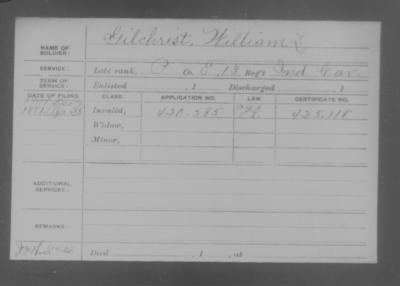 NAME OF SOLDIER: Gilchrist, William L
SERVICE: Late rank, P Co. E, 13 Reg't Ind Cav.
TERM OF SERVICE: Enlisted , 1 Discharged , 1
DATE OF FILING. CLASS. APPLICATION NO. LAW. CERTIFICATE NO.
Invalid, 420.585 425.118
Widow,
Minor,
ADDITIONAL SERVICES:
REMARKS:
Died , 1 , at